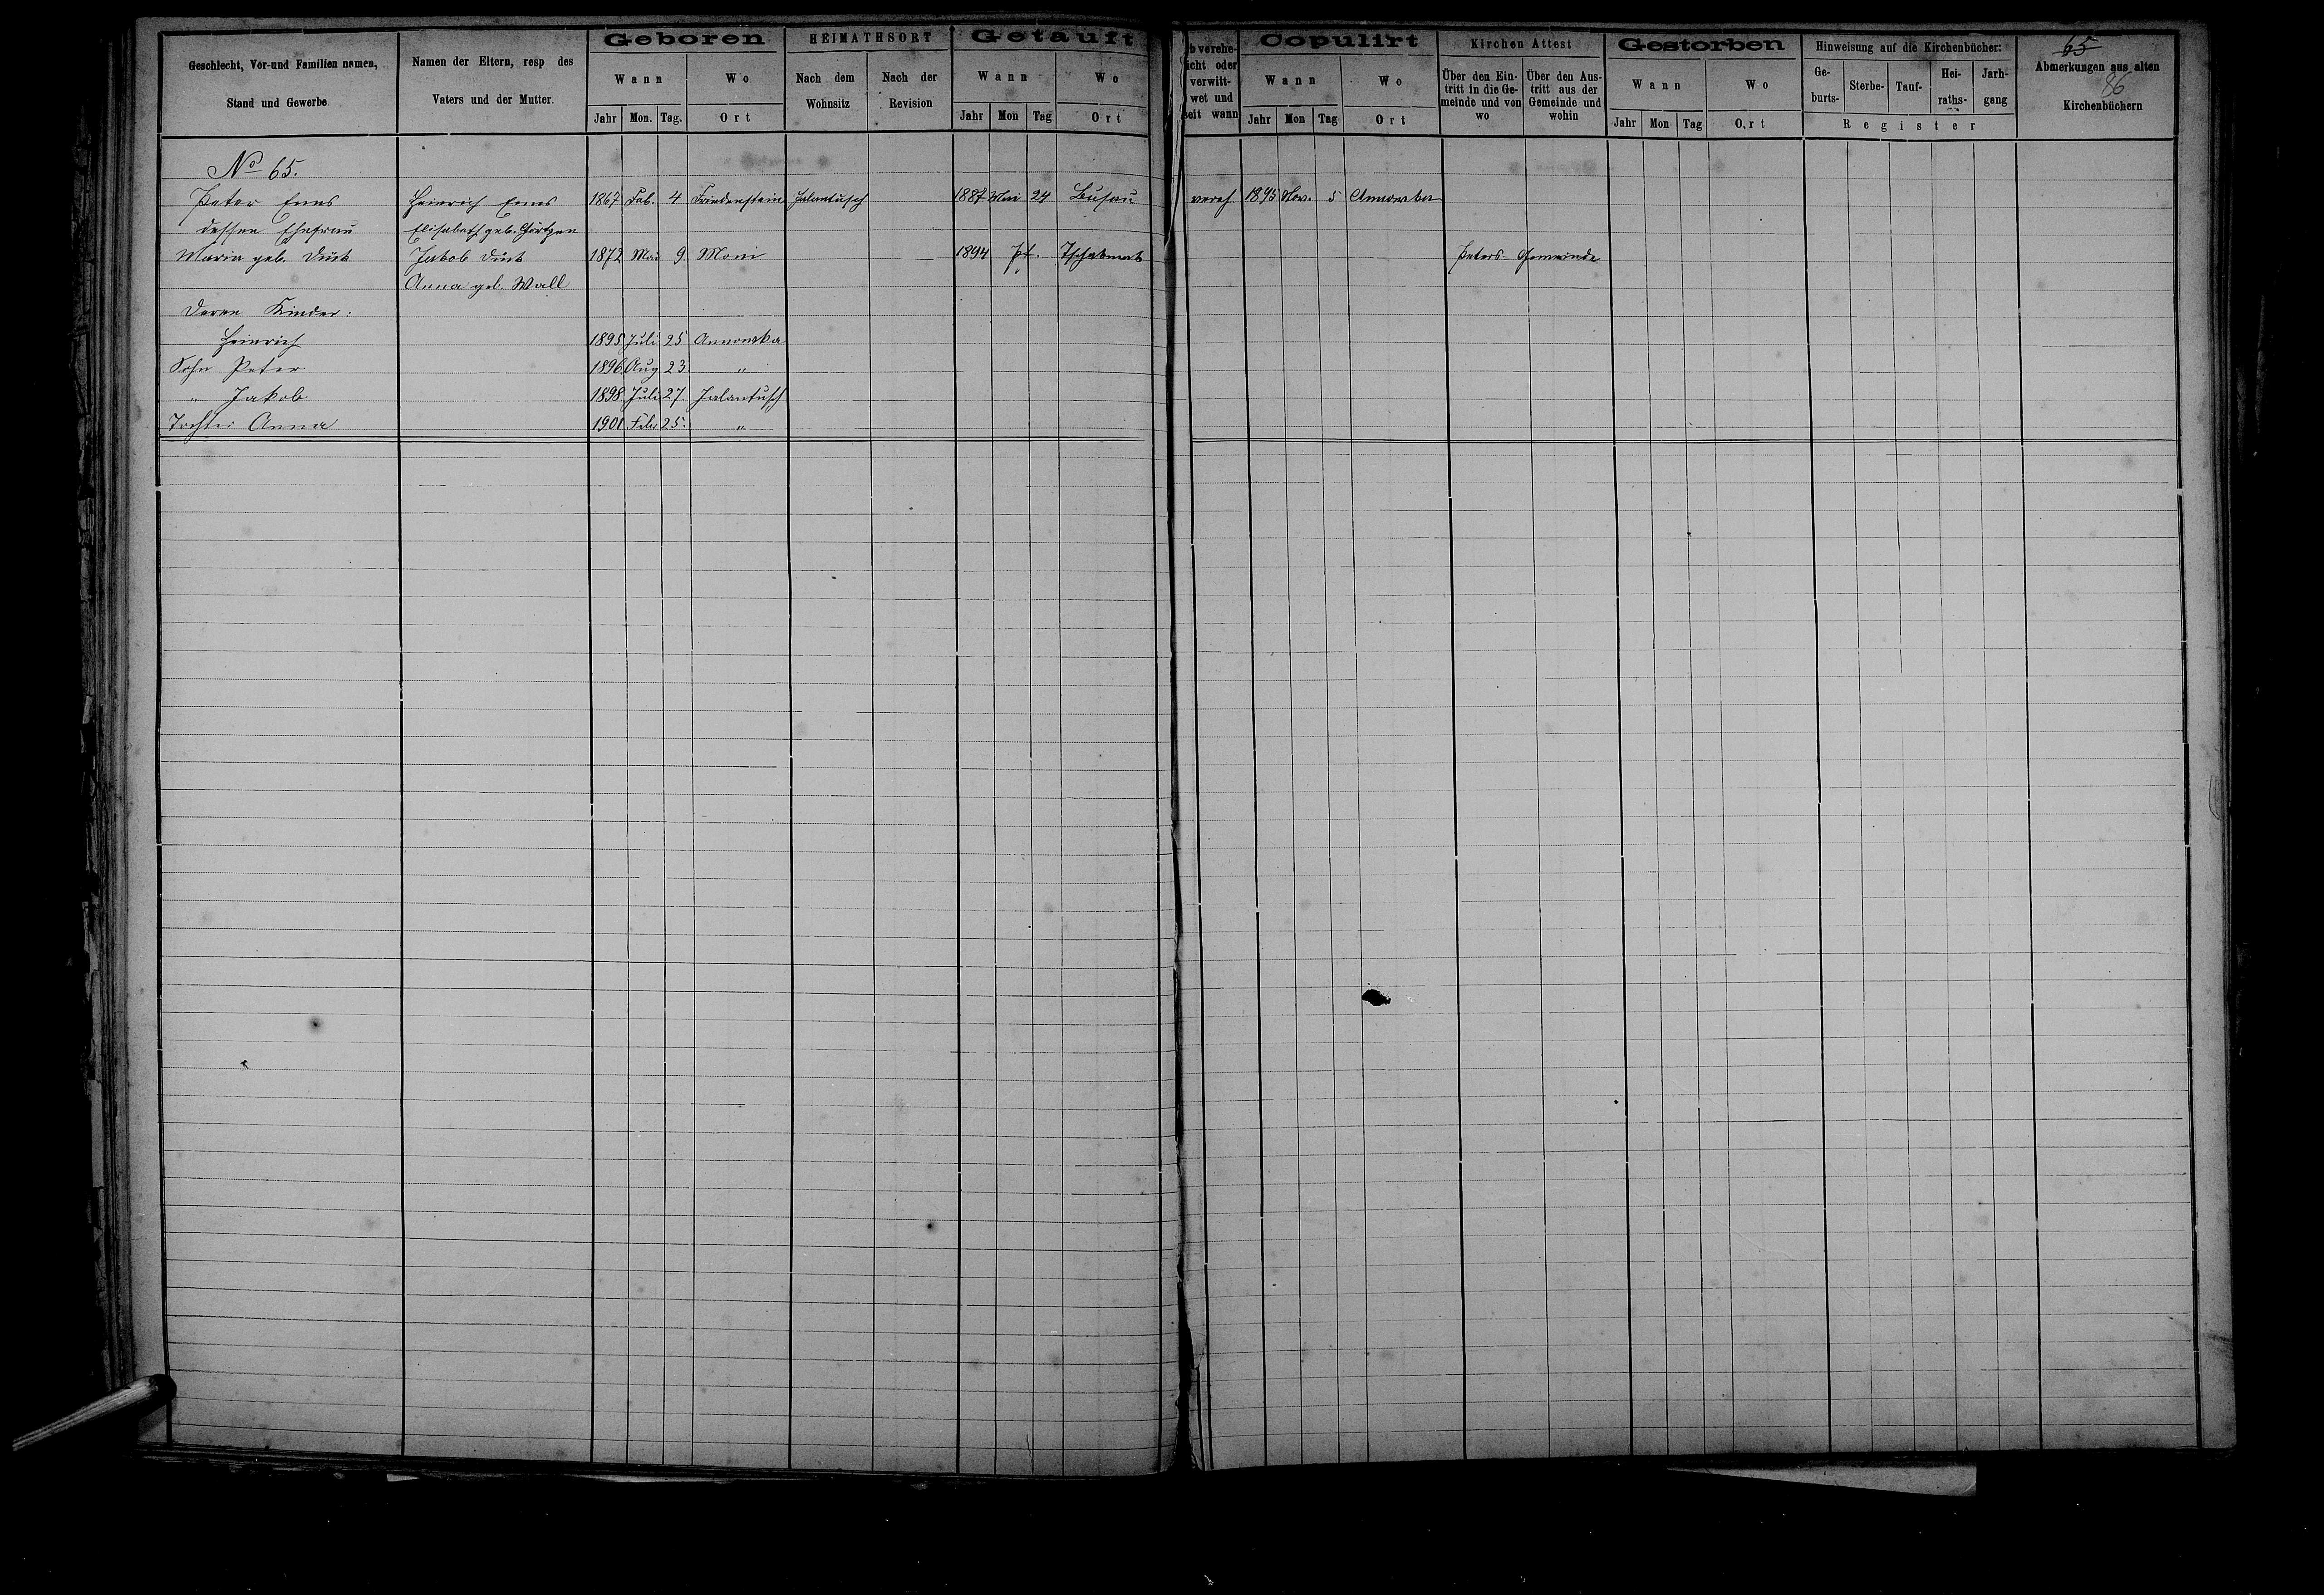 65
86
Geschlecht, Vor-und Familien namen, Stand und Gewerbe
Namen der Eltern, resp des Vaters und der Mutter.
Geboren
Wann
Jahr Mon. Tag.
Wo
Ort
HEIMATHSORT
Nach dem Wohnsitz
Nach der Revision
Getauft
Wann
Jahr Mon Tag
Wo
Ort
b verehe-
icht oder
verwitt-
wet und
seit wann
Copulirt
Wann
Jahr Mon Tag
Wo
Ort
Kirchen Attest
Über den Ein-
tritt in die Ge-
meinde und von
wo
Über den Aus-
tritt aus der
Gemeinde und
wohin
Gestorben
Wann
Jahr Mon Tag
Wo
Ort
Hinweisung auf die Kirchenbücher:
Ge-
burts-
Sterbe-
Tauf-
Hei-
raths-
Jarh-
gang
Register
Abmerkungen aus alten
Kirchenbüchern
No 65.
Peter Enns Heinrich Enns 1867 Feb. 4 Friedenstein Jalantusch 1887 Mai 24 Busau vereh. 1895 Nov. 5 Annowka
dessen Ehefrau Elisabeth geb. Görtzen
Maria geb. Dück Jakob Dück 1872 Mai 9 Moni 1894 Pf. Tschakmak Peters-Gemeinde
Anna geb. Wall
Deren Kinder:
Heinrich 1895 Juli 25 Annowka
Sohn Peter 1896 Aug 23 "
" Jakob 1898 Juli 27 Jalantusch
Tochter Anna 1901 Febr 25. "